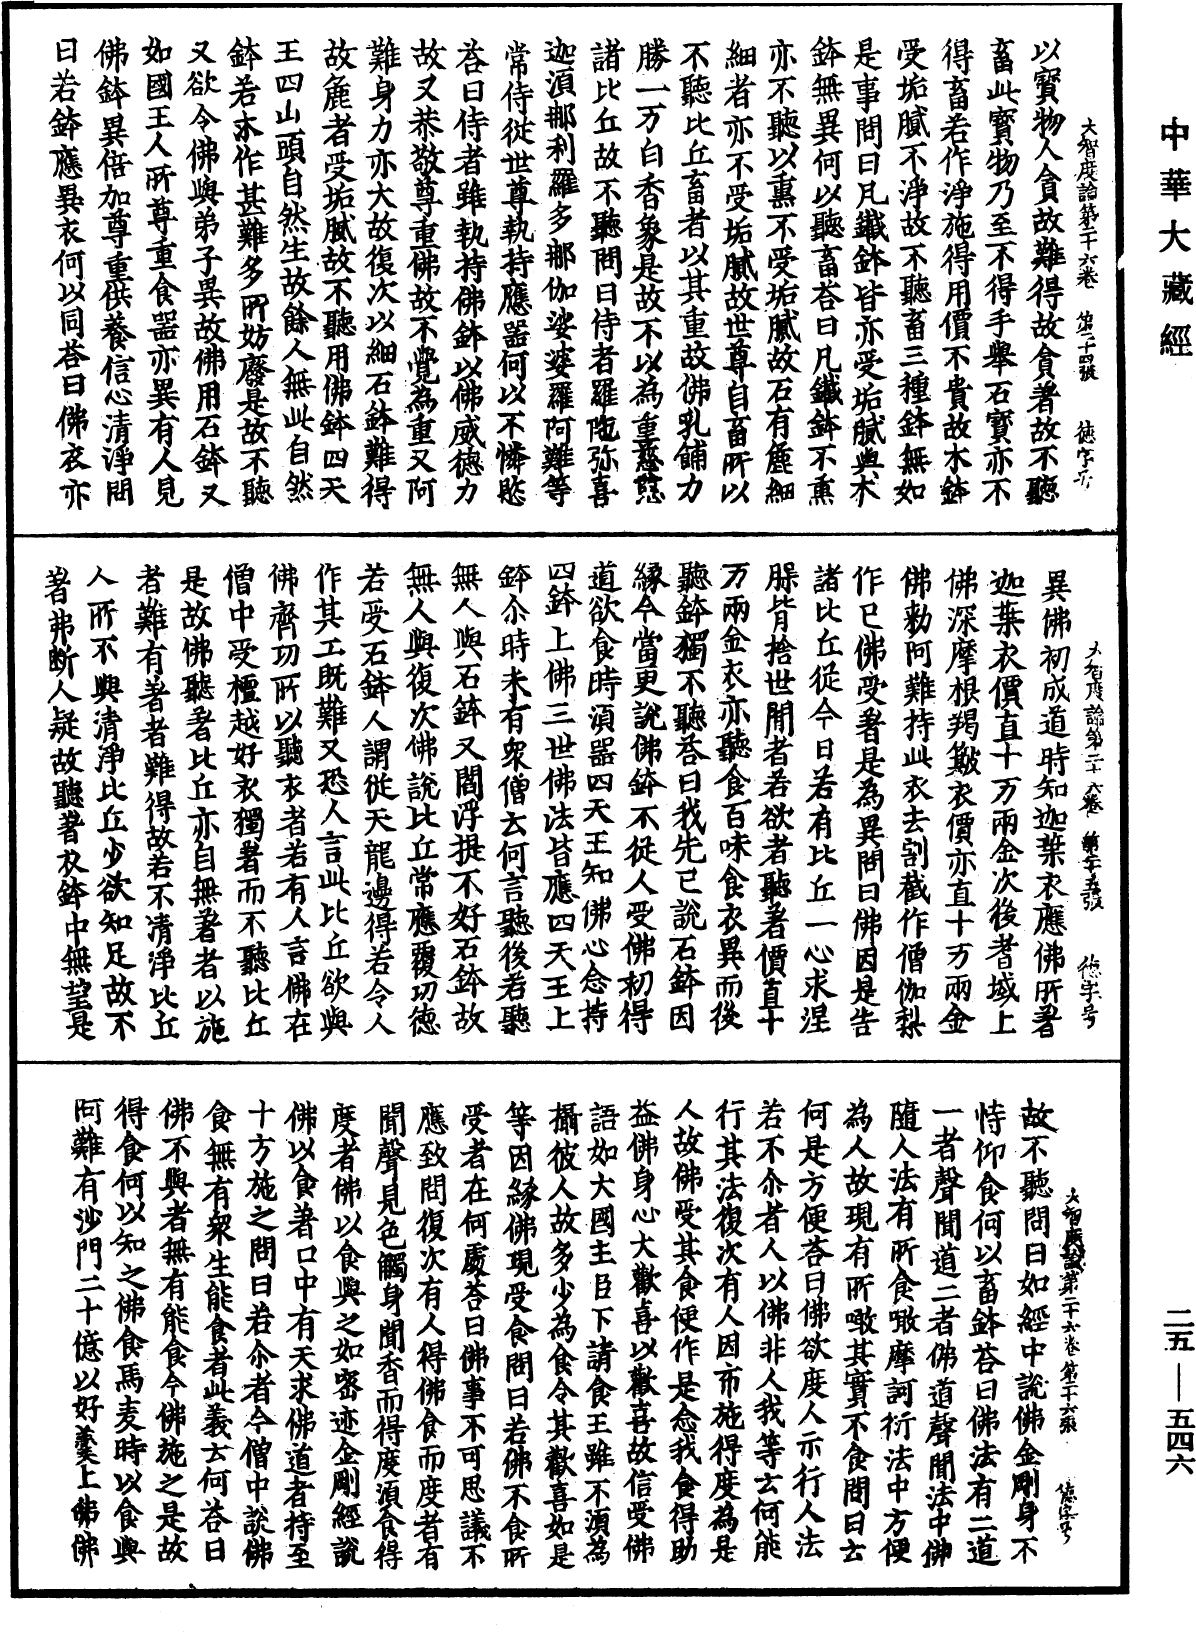 中華大藏經
大智度論第二十六卷　第二十四張　德字号
以寶物人貪故難得故貪著故不聽
畜此寶物乃至不得手舉石寶亦不
得畜若作淨施得用價不貴故木鉢
受垢膩不淨故不聽畜三種鉢無如
是事問曰凡鐵鉢皆亦受垢膩與木
鉢無異何以聽畜荅曰凡鐵鉢不熏
亦不聽以熏不受垢膩故石有麁細
細者亦不受垢膩故世尊自畜所以
不聽比丘畜者以其重故佛乳餔力
勝一万白香象是故不以為重慈愍
諸比丘故不聽問曰侍者羅陁弥喜
迦湏那利羅多那伽娑婆羅阿難等
常侍從世尊執持應器何以不憐愍
荅曰侍者雖執持佛鉢以佛威德力
故又恭敬尊重佛故不覺為重又阿
難身力亦大故復次以細石鉢難得
故麁者受垢膩故不聽用佛鉢四天
王四山頭自然生故餘人無此自然
鉢若求作甚難多所妨廢是故不聽
又欲令佛與弟子異故佛用石鉢又
如國王人所尊重食器亦異有人見
佛鉢異倍加尊重供養信心清淨問
曰若鉢應異衣何以同荅曰佛衣亦
大智度論第二十六卷　第二十五張　德字号
異佛初成道時知迦葉衣應佛所著
迦葉衣價直十万兩金次後耆域上
佛深摩根羯簸衣價亦直十万兩金
佛勑阿難持此衣去割截作僧伽梨
作已佛受著是為異問曰佛因是告
諸比丘從今日若有比丘一心求涅
槃背捨世間者若欲著聽著價直十
万兩金衣亦聽食百味食衣異而後
聽鉢獨不聽荅曰我先已說石鉢因
緣今當更說佛鉢不從人受佛初得
道欲食時湏器四天王知佛心念持
四鉢上佛三世佛法皆應四天王上
鉢尒時未有眾僧云何言聽後若聽
無人與石鉢又閻浮提不好石鉢故
無人與復次佛說比丘常應覆功德
若受石鉢人謂從天龍邊得若令人
作其工既難又恐人言此比丘欲與
佛齊功所以聽衣者若有人言佛在
僧中受檀越好衣獨著而不聽比丘
是故佛聽著比丘亦自無著者以施
者難有著者難得故若不清淨比丘
人所不與清淨比丘少欲知足故不
著弗斷人疑故聽著衣鉢中無望是
大智度論第二十六卷　第二十六張　德字号
故不聽問曰如經中說佛金剛身不
恃仰食何以畜鉢荅曰佛法有二道
一者聲聞道二者佛道聲聞法中佛
隨人法有所食噉摩訶衍法中方便
為人故現有所噉其實不食問曰云
何是方便荅曰佛欲度人示行人法
若不尒者人以佛非人我等云何能
行其法復次有人因布施得度為是
人故佛受其食便作是念我食得助
益佛身心大歡喜以歡喜故信受佛
語如大國主臣下請食王雖不湏為
攝彼人故多少為食令其歡喜如是
等因緣佛現受食問曰若佛不食所
受者在何處荅曰佛事不可思議不
應致問復次有人得佛食而度者有
聞聲見色觸身聞香而得度湏食得
度者佛以食與之如密迹金剛經說
佛以食著口中有天求佛道者持至
十方施之問曰若尒者今僧中說佛
食無有眾生能食者此義云何荅曰
佛不與者無有能食今佛施之是故
得食何以知之佛食馬麦時以食與
阿難有沙門二十億以好羹上佛佛
二五—五四六